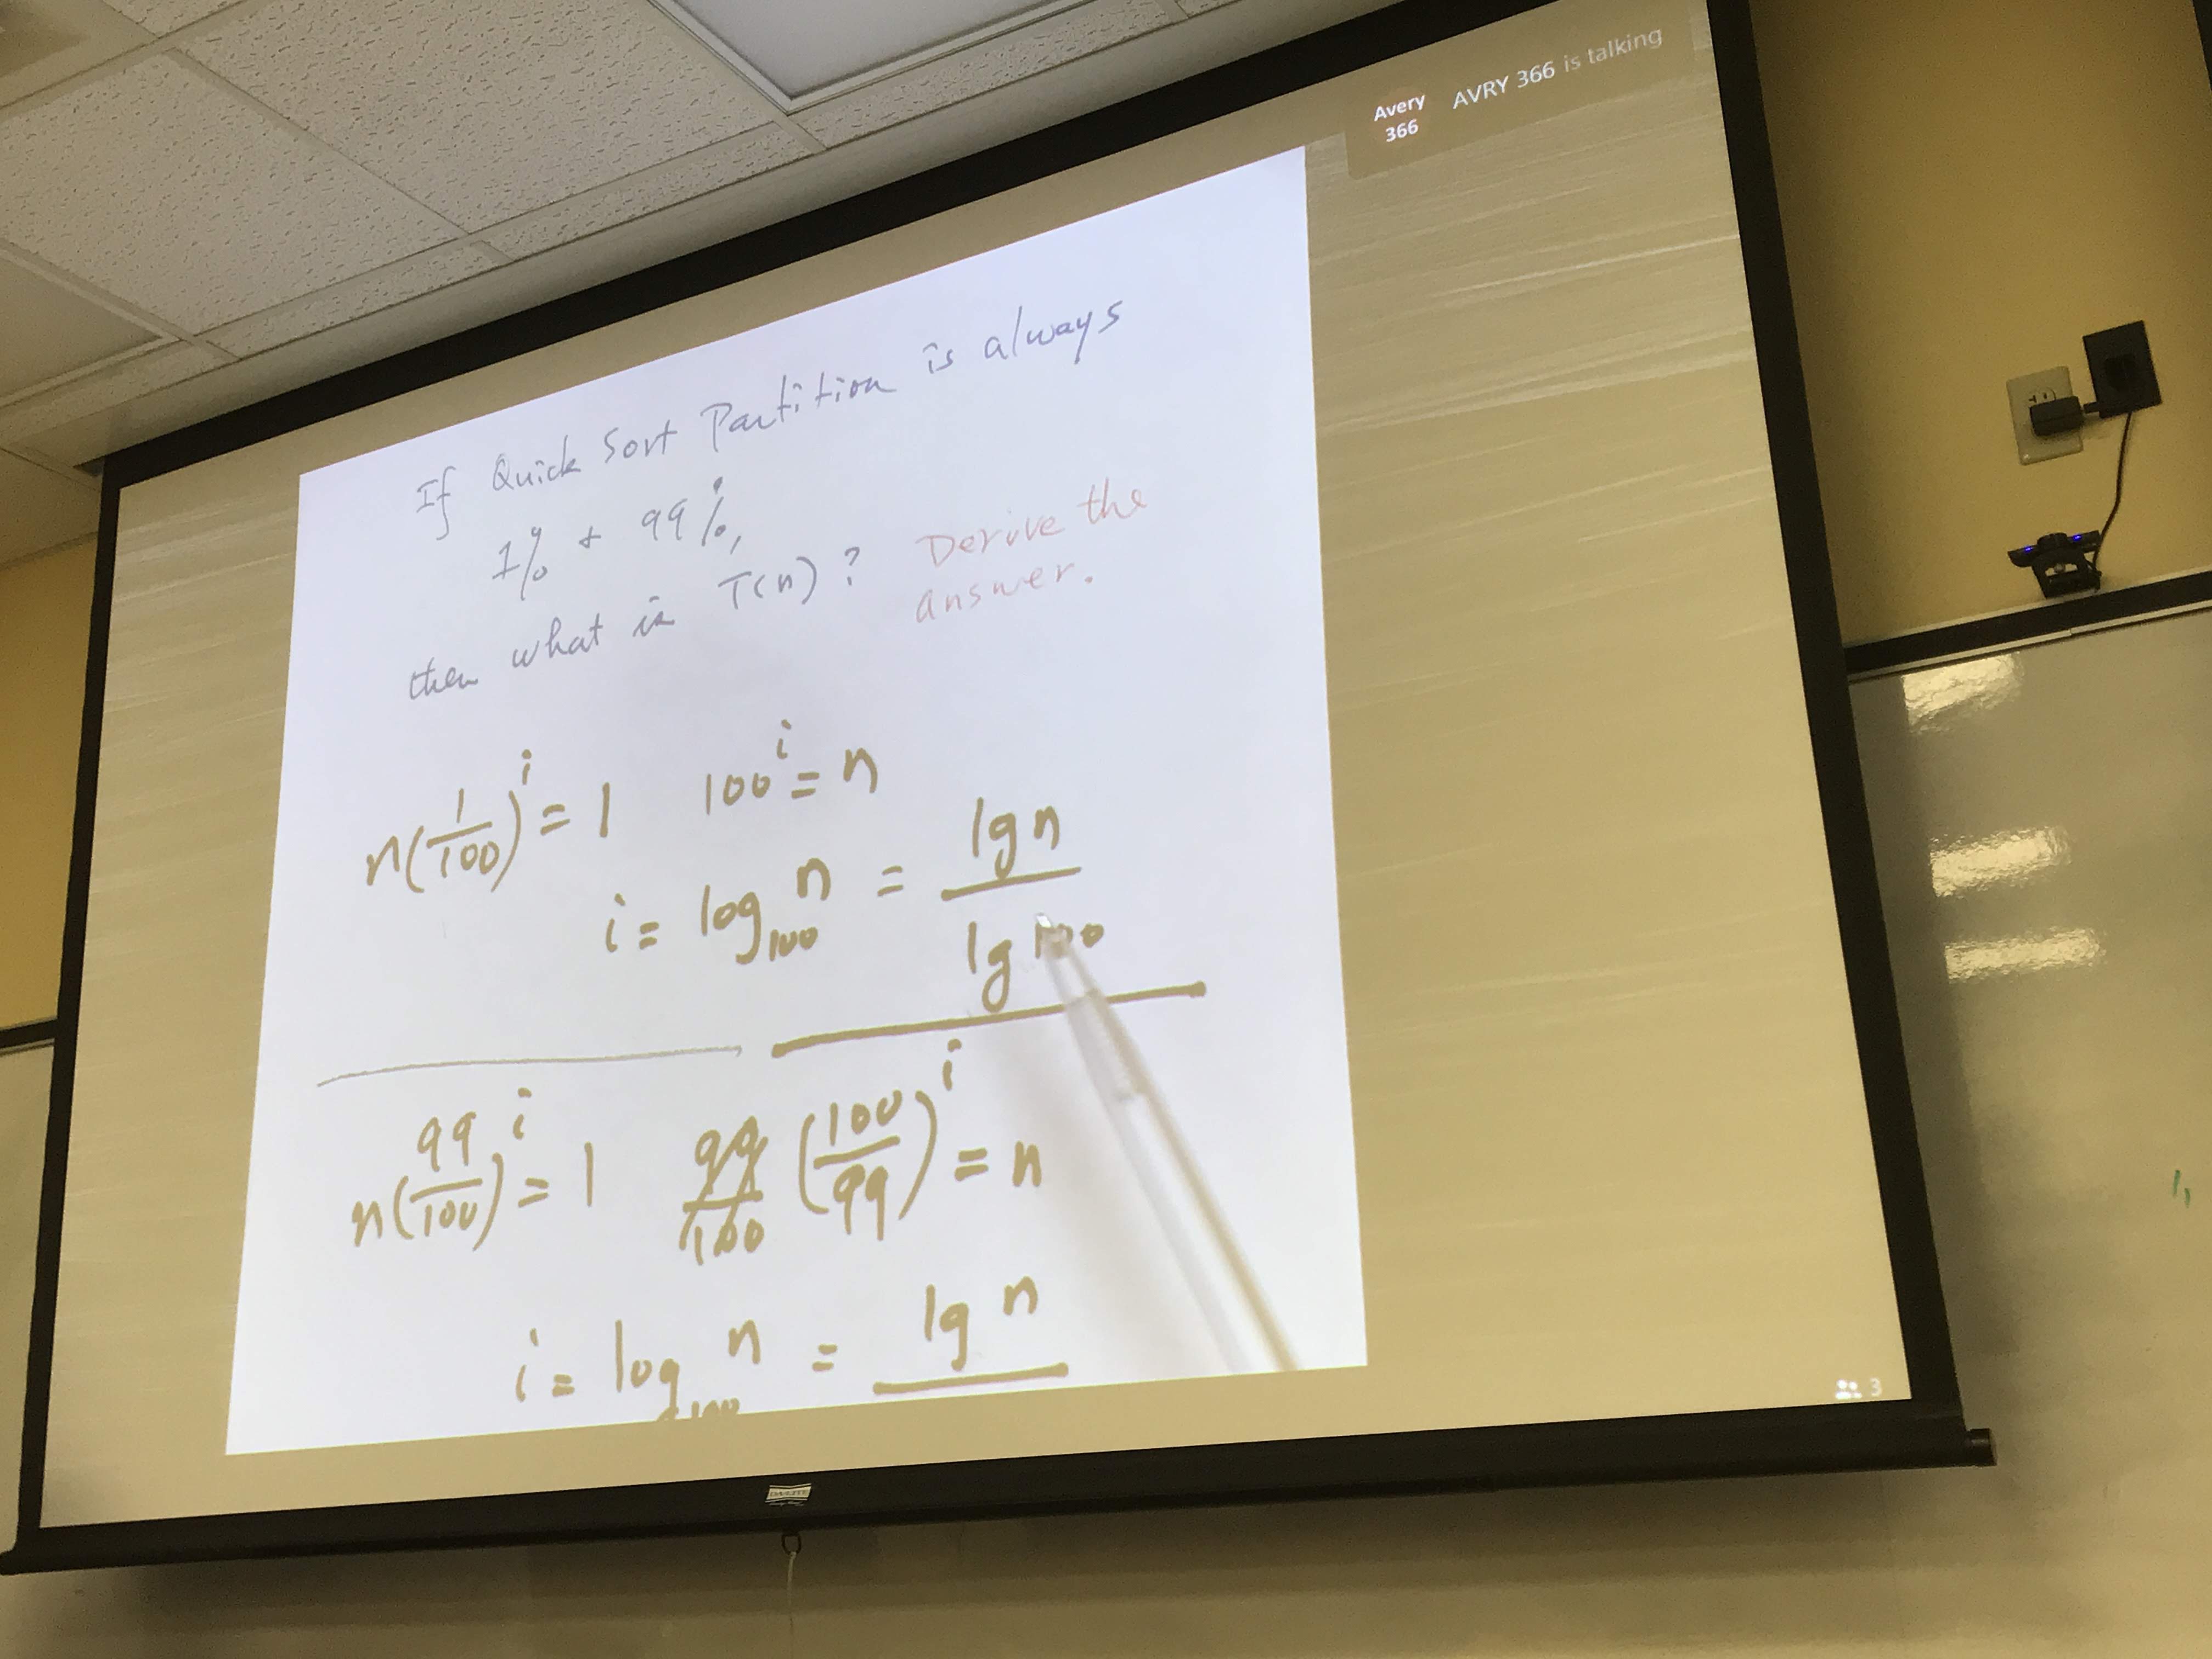 Avery
366
AVRY 366 is talking
If Quick Sort Partition is always
1% + 99%,
then what is T(n)? Derive the
answer.
n(1/100)^i = 1 100^i = n
i = log_100 n = lg n / lg 100
n(99/100)^i = 1 99/100 (100/99)^i = n
i = log n = lg n
100
3
DA-LITE